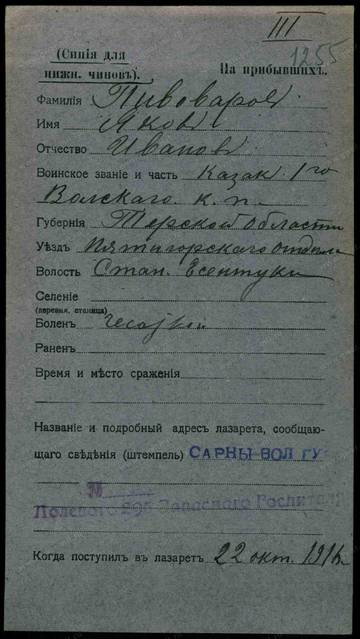 III
1255
(Синія для
нижн. чиновъ).
На прибывшихъ.
Фамилія Пивоваров
Имя Яков
Отчество Иванов
Воинское званіе и часть Казак 1го
Волскаго к. п.
Губернія Терской области
Уѣздъ Пятигорскаго отдѣла
Волость Стан. Есентуки
Селеніе
(деревня, станица)
Боленъ
Раненъ
Время и мѣсто сраженія
Названіе и подробный адресъ лазарета, сообщаю-
щаго свѣдѣнія (штемпель) САРНЫ ВОЛ ГУ
Полевого 295 Запасного Госпиталя
Когда поступилъ въ лазаретъ 22 окт. 1916